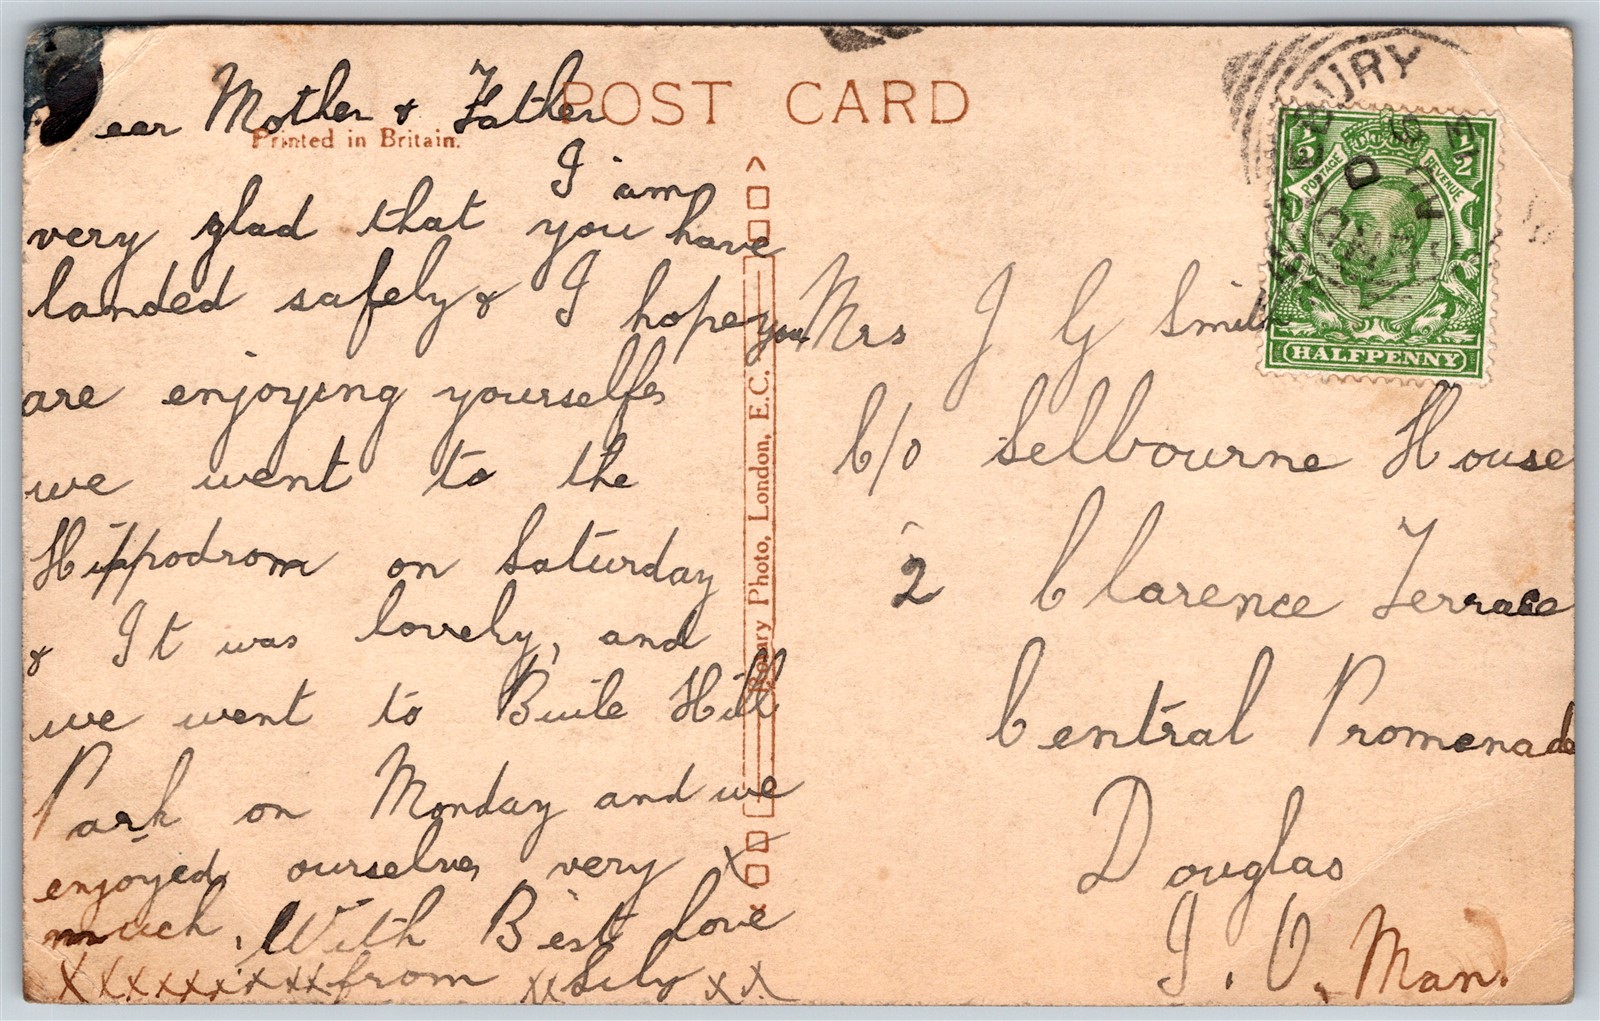 POST CARD
Printed in Britain.
ear Mother & Father
I am
very glad that you have
landed safely & I hope you
are enjoying yourselfes
we went to the
Hippodrom on Saturday
& It was lovely, and
we went to Buile Hill
Park on Monday and we
enjoyed ourselves very x
much. With Best love
xxxxxxxxxx from xx Lily xx
Rotary Photo, London, E.C.
Mrs J G Smith
C/o Selbourne House
2 Clarence Terrace
Central Promenade
Douglas
I. O. Man.
BURY
1/2 1/2
POSTAGE REVENUE
HALFPENNY